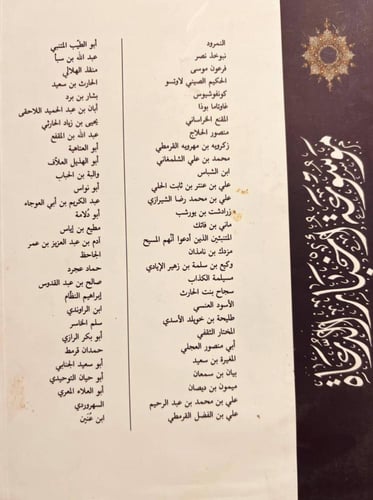 النمرود
نبوخذ نصر
فرعون موسى
الحكيم الصيني لاوتسو
كونفوشيوس
غاوتاما بوذا
المقنع الخراساني
منصور الحلاج
زكرويه بن مهرويه القرمطي
محمد بن علي الشلمغاني
ابن الشباس
علي بن عنتر بن ثابت الحلي
علي بن محمد رضا الشيرازي
زرادشت بن يورشب
ماني بن فاتك
المتنبئين الذين أدعوا أنّهم المسيح
مزدك بن نامذان
وكيع بن سلمة بن زهير الإيادي
مسيلمة الكذاب
سجاح بنت الحارث
الأسود العنسي
طليحة بن خويلد الأسدي
المختار الثقفي
أبي منصور العجلي
المغيرة بن سعيد
بيان بن سمعان
ميمون بن ديصان
علي بن محمد بن عبد الرحيم
علي بن الفضل القرمطي
أبو الطيّب المتنبي
عبد الله بن سبأ
منقذ الهلالي
الحارث بن سعيد
بشار بن برد
أبان بن عبد الحميد اللاحقى
يحيى بن زياد الحارثي
عبد الله بن المقفع
أبو العتاهية
أبو الهذيل العلاّف
والبة بن الحباب
أبو نواس
عبد الكريم بن أبي العوجاء
أبو دُلامة
مطيع بن إياس
آدم بن عبد العزيز بن عمر
الجاحظ
حماد عجرد
صالح بن عبد القدوس
إبراهيم النظّام
ابن الراوندي
سلم الخاسر
أبو بكر الرازي
حمدان قرمط
أبو سعيد الجنابي
أبو حيان التوحيدي
أبو العلاء المعري
السهروردي
ابن عُنَين
موسوعة أخبار